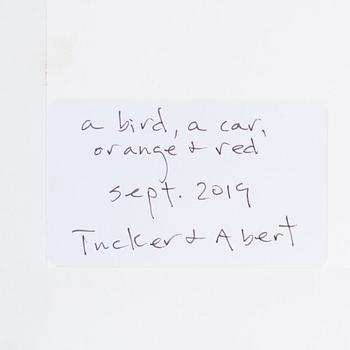 a bird, a car,
orange + red
sept. 2019
Tucker + Abert